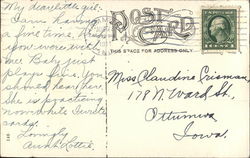 My dear little girl:-
I am having
a fine time. Wish
you were with
me. Baby just
plays fine. You
should hear her.
She is practicing
now while I write
cards.
Lovingly
Aunt Lottie.
POST CARD
THIS SPACE FOR ADDRESS ONLY
Miss Claudine Crisman
178 N. Ward St.
Ottumwa
Iowa.